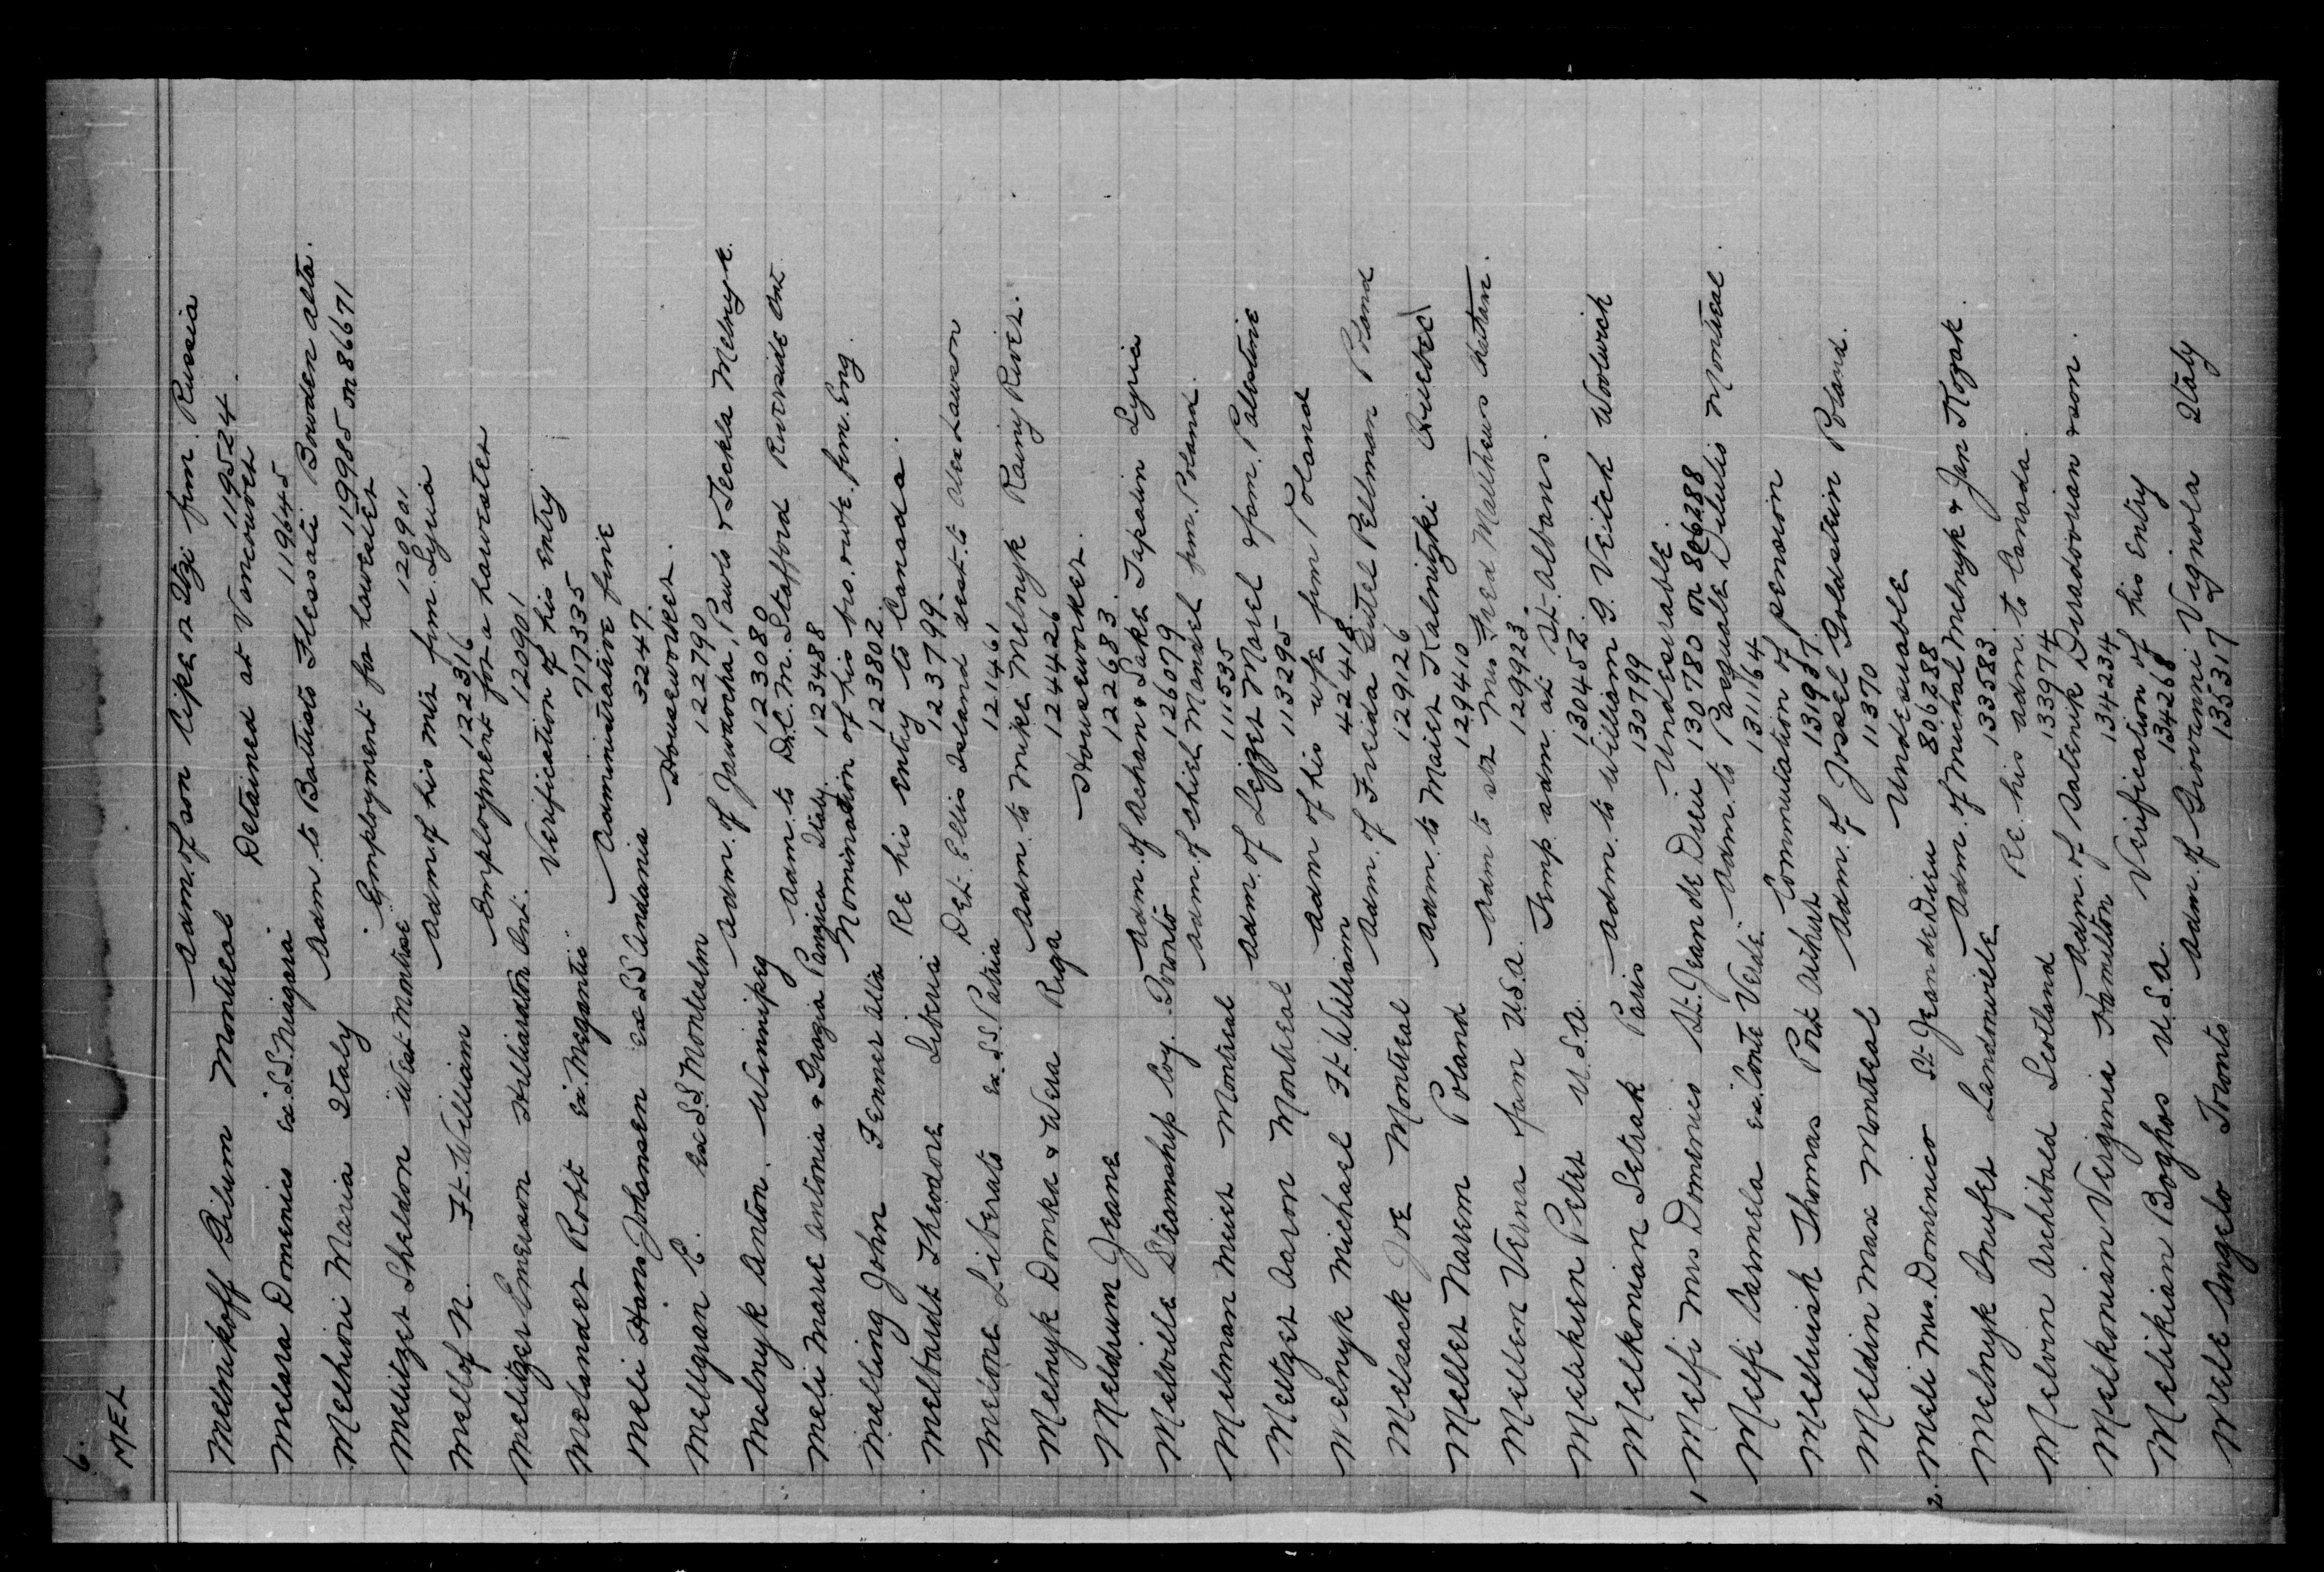 6.
MEL
Melnikoff Gilum Montreal Adm. of son Lipe & Itzi frm. Russia
119524
Melara Domenico ex. S.S. Niagara Detained at Vancouver
119645
Melhiori Maria Italy Adm. to Battisto Flessati Bowden Alta.
119985 on 86671
Melitzer Sheldon West Montrose Employment for harvester
120901
Mellof N. Ft. Williams Adm. of his mir frm. Syria
122316
Melitzer Emerson Hilliardton Ont. Employment for a harvester
120901
Melander Robt ex. Megantic Verification of his entry
717335
Meli Hans Johansen ex SS Andania Administrative fine
3247.
Mellgran C. ex S.S. Montcalm Houseworker.
122790
Melnyk Anton. Winnipeg Adm. of Jawdocha, Pawlo & Teckla Melnyk.
123080
Meli Marie Antonia & Grazia Pangica Italy. Adm. to Dr. C. M. Stafford Riverside Ont.
123488
Melling John Fenner Alta Nomination of his bro. & wife. frm. Eng.
123802.
Melbardt Theodore Liberia Re his entry to Canada.
123799.
Melone Liberato ex. S.S. Patria Det. Ellis Island dest. to Alex Lawson
121461
Melnyk Domka & Wera Riga Adm. to Mike Melnyk Rainy River.
124426
Meldrum Jeane Houseworker.
122683.
Melville Steamship Coy. Toronto Adm. of Achan & Sake Tapalin Syria
126079
Melman Meier Montreal Adm. of Chiel Mansiel frm. Poland.
111535
Meltzer Aaron Montreal Adm. of Lejzer Morel & fam. Palestine
113295
Melnyk Michael Ft. William Adm of his wife frm Poland
424418.
Melsack Joe Montreal Adm. of Freida Gutel Pellman Poland
129126
Meller Narem Poland Adm. to Maier Kalnitzki Quebec
129410
Mellem Verna fam U.S.A. Adm to sr Mrs Fred Matthews Saltan.
129923.
Melikuen Peter U.S.A. Temp. adm. at St. Albans.
130452.
Melkonian Setrak Paris Adm. to William G. Veitch Woolwich
130799
1 Melfi Mrs Domenico St. Jean de Dieu Undesirable.
130780 on 806288
Melfi Carmela ex. Conte Verde Adm. to Pasquale Vitulis Montreal.
131164
Melluish Thomas Port Arthur Commutation of pension
131937.
Meldin Max Montreal Adm. of Josel Goldstein Poland.
11370
2. Meli Mrs. Domenico St. Jean de Dieu Undesirable
806288
Melnyk Onufer Landonville Adm. of Michal Melnyk & Jan Kozak.
133583.
Melvin Archibald Scotland Re. his adm. to Canada.
133974
Melkonian Verginia Hamilton Adm. of Satenik Duradourian & son.
134234
Melikian Boghos U.S.A. Verification of his entry
134268
Mele Angelo Toronto Adm. of Giovanni Vignola Italy
135317